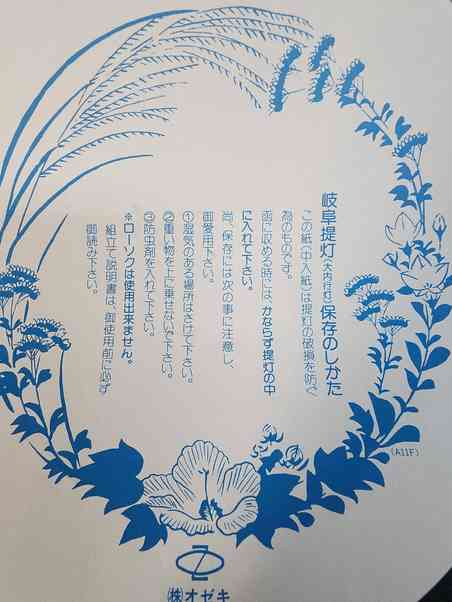 岐阜提灯(大内行灯)保存のしかた
この紙(中入紙)は提灯の破損を防ぐ
為のものです。
函に収める時には、かならず提灯の中
に入れて下さい。
尚、保存には次の事に注意し、
御愛用下さい。
①湿気のある場所はさけて下さい。
②重い物を上に乗せないで下さい。
③防虫剤を入れて下さい。
※ローソクは使用出来ません。
組立て説明書は、御使用前に必ず
御読み下さい。
(A11F)
㈱オゼキ